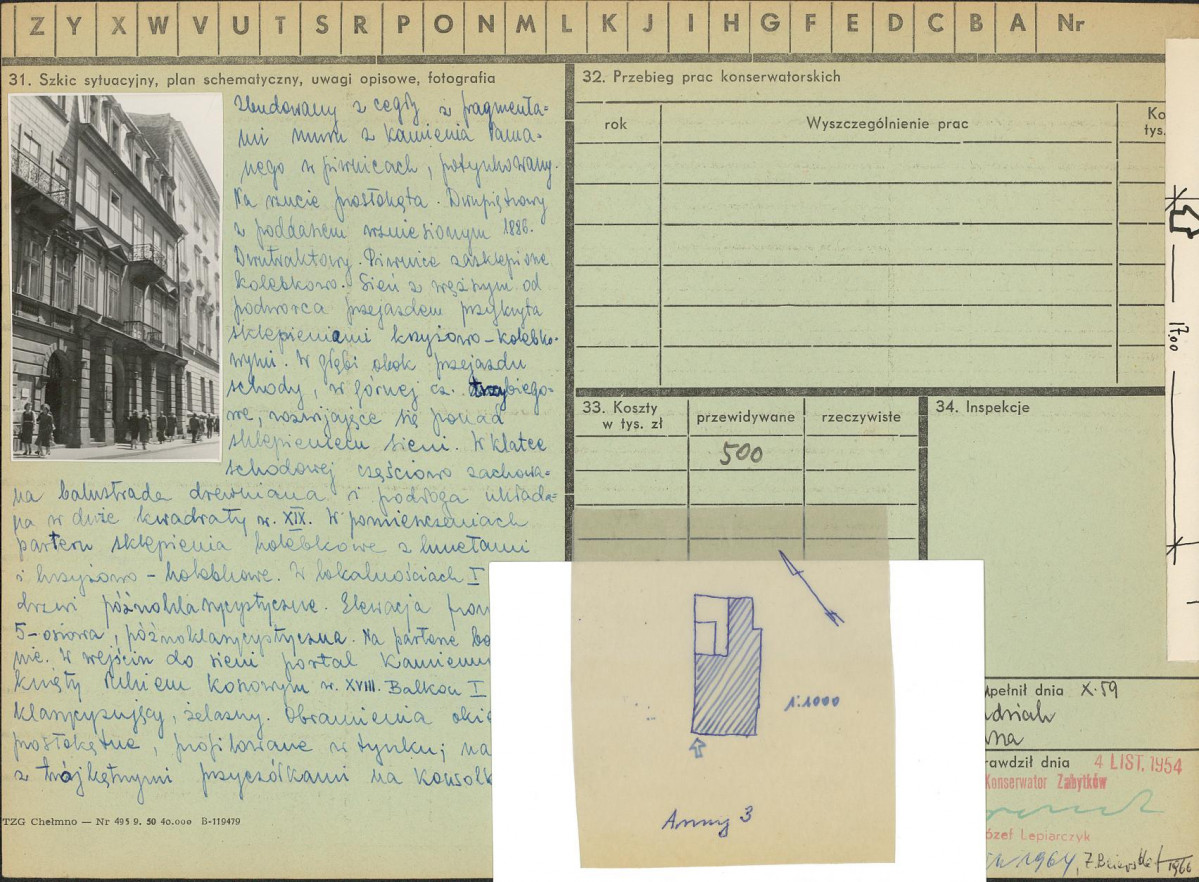 Z Y X W V U T S R P O N M L K J I H G F E D C B A Nr
31. Szkic sytuacyjny, plan schematyczny, uwagi opisowe, fotografia
Zbudowany z cegły z fragmenta=
mi muru z kamienia łama=
nego w piwnicach, potynkowany.
Na rzucie prostokąta. Dwupiętrowy
z poddaszem wzniesionym 1886.
Dwutraktowy. Piwnice zasklepione
kolebkowo. Sień z węższym od
podwórca przejazdem przykryta
sklepieniami krzyżowo-kolebko-
wymi. W głębi obok przejazdu
schody, w górnej cz. trzybiego-
we, rozwijające się ponad
sklepieniem sieni. W klatce
schodowej częściowo zachowa=
na balustrada drewniana i podłoga układa=
na w duże kwadraty w. XIX. W pomieszczeniach
parteru sklepienia kolebkowe z lunetami
i krzyżowo-kolebkowe. W lokalnościach I
drzwi późnoklasycystyczne. Elewacja fron
5-osiowa, późnoklasycystyczna. Na parterze bo
nie. W wejściu do sieni portal kamienn
knięty łukiem koszowym w. XVIII. Balkon I
klasycyzujący, żelazny. Obramienia okie
prostokątne, profilowane w tynku; na
z trójkątnymi przyczółkami na konsolk
TZG Chełmno — Nr 495 9. 50 40.000 B-119479
32. Przebieg prac konserwatorskich
rok Wyszczególnienie prac Ko
tys.
17,00
33. Koszty w tys. zł przewidywane rzeczywiste
500
34. Inspekcje
1:1000
Anny 3
pełnił dnia X.59
rawdził dnia 4 LIST. 1954
Konserwator Zabytków
ózef Lepiarczyk
1964, 1966